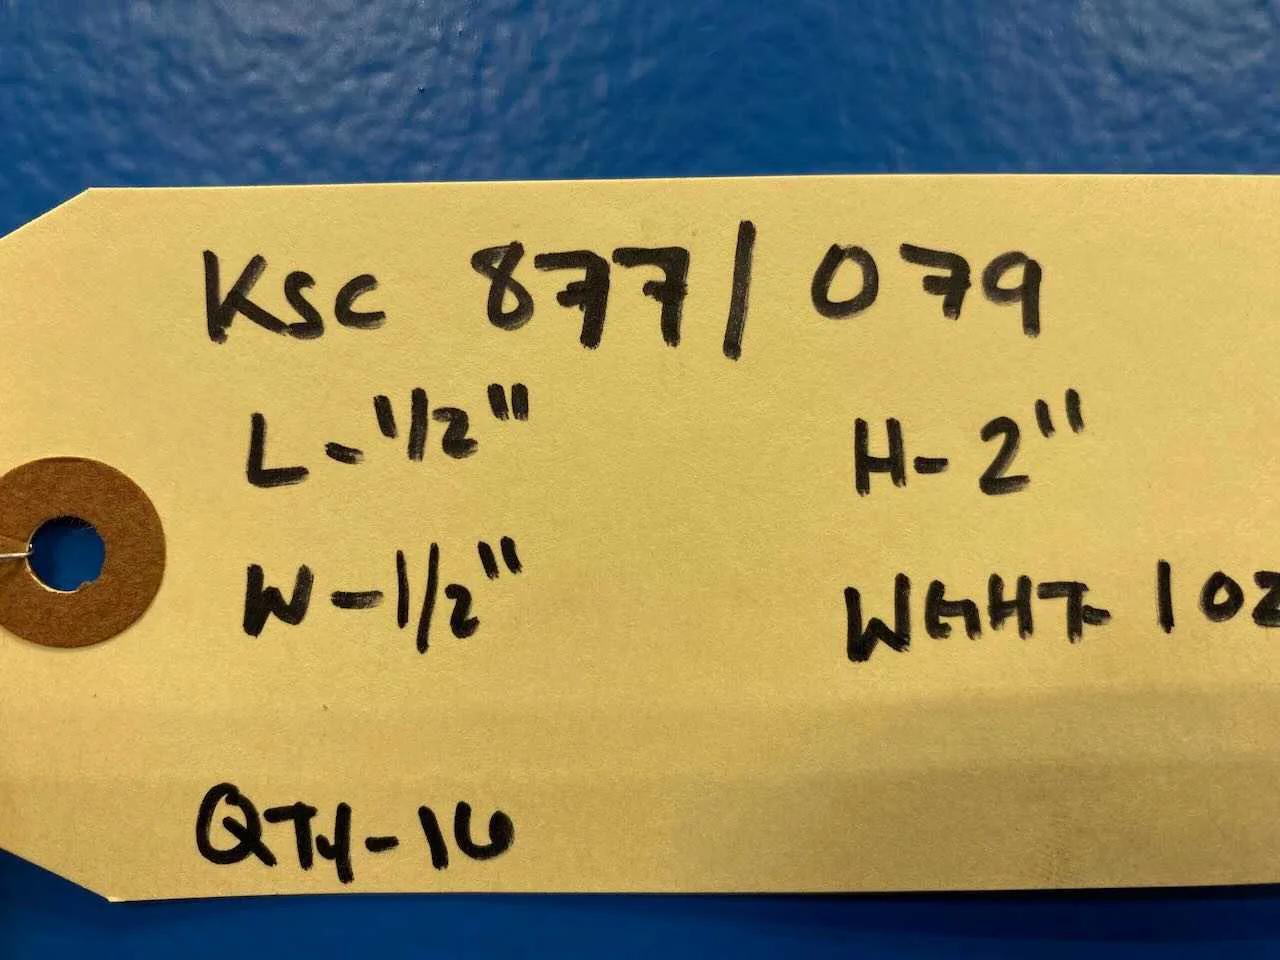 KSC 877/079
L-1/2" H-2"
W-1/2" WGHT- 1 OZ
QTY-16